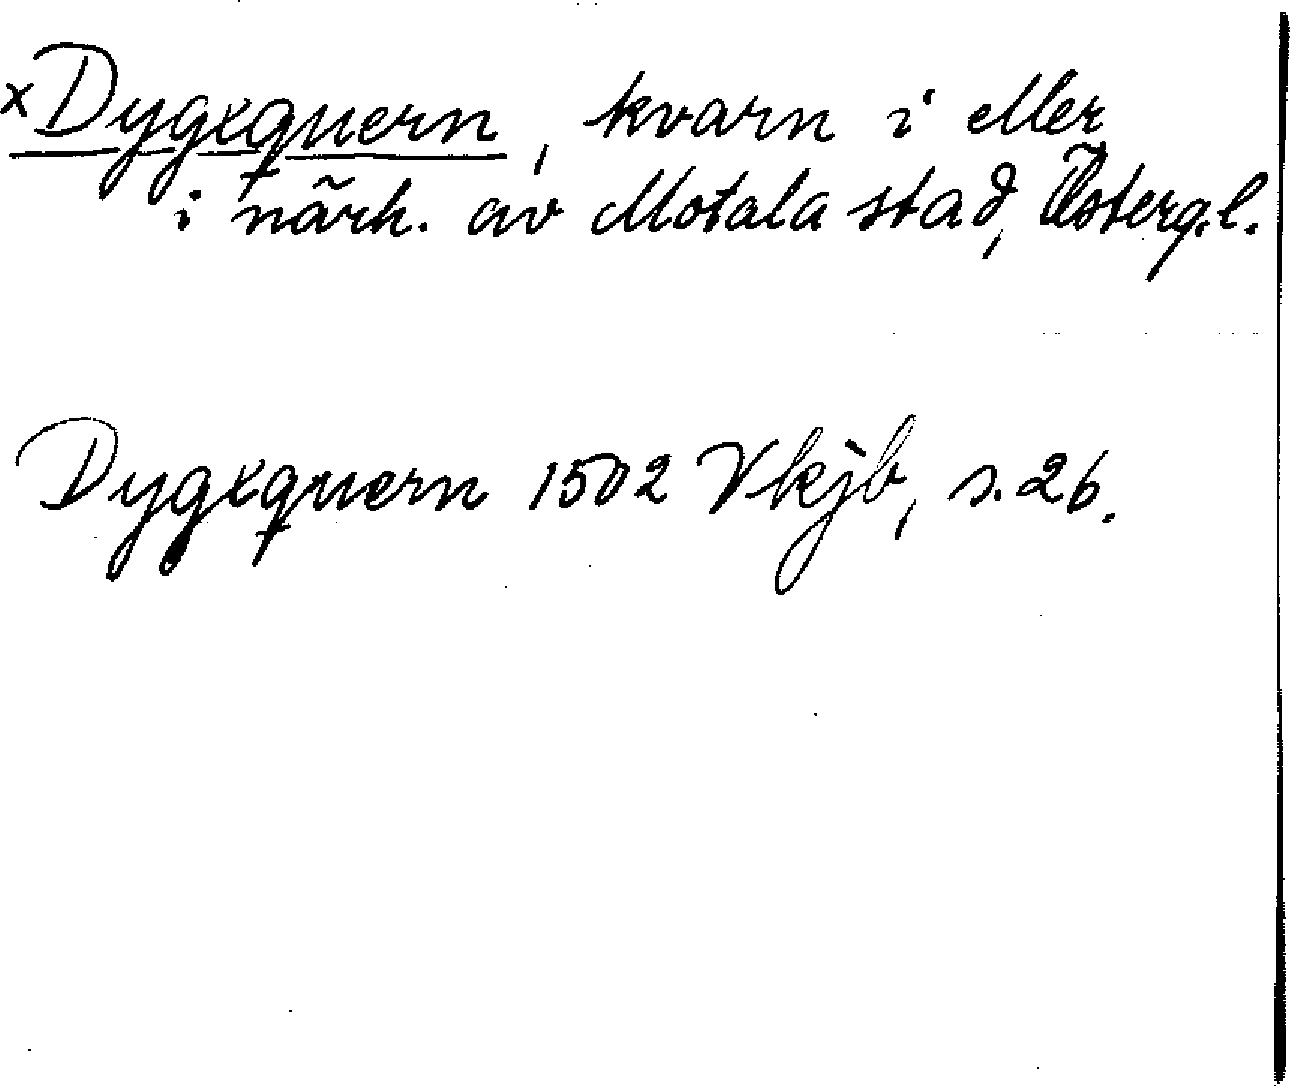 x Dygxquern, kvarn i eller
i närh. av Motala stad, Östergl.
Dygxquern 1502 Vkjb, s. 26.